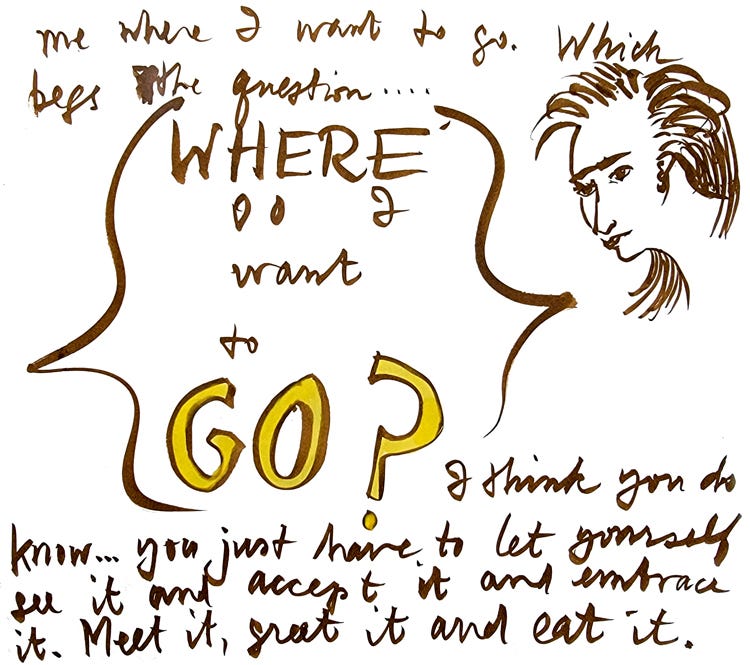 me where I want to go. Which
begs the question....
WHERE
do I
want
to
GO?
I think you do
know... you just have to let yourself
see it and accept it and embrace
it. Meet it, greet it and eat it.